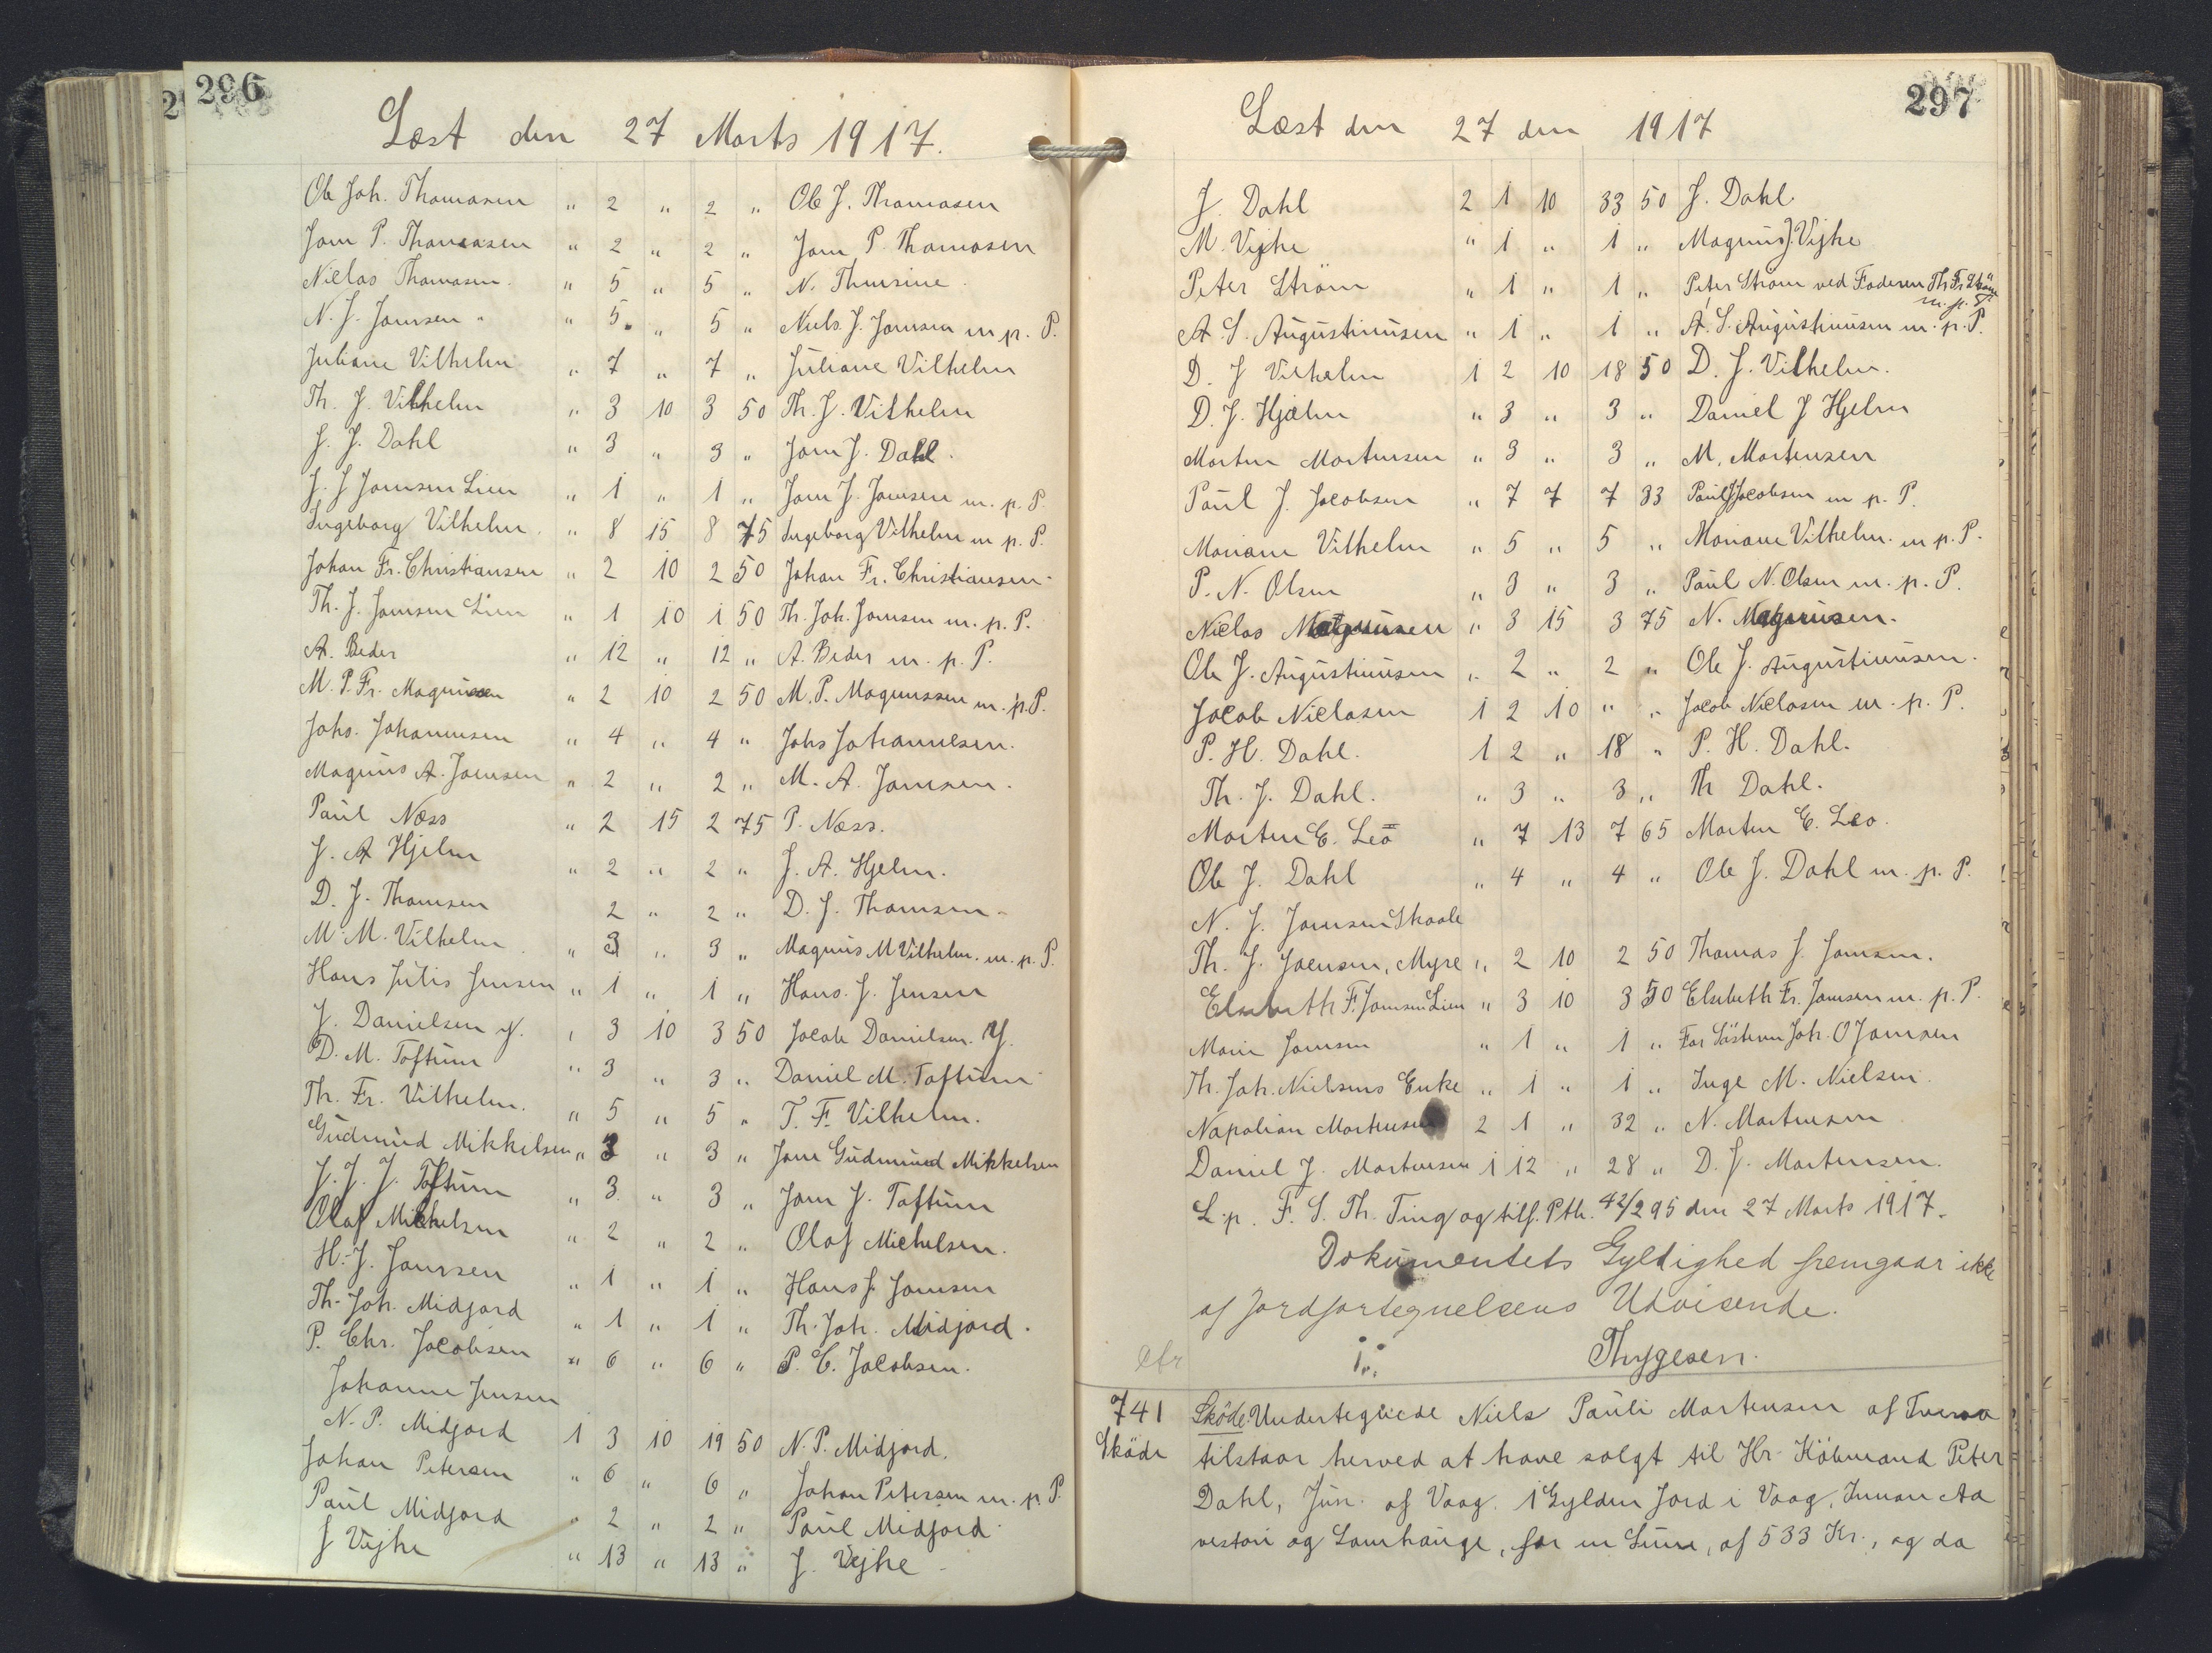 296
Læst den 27 Marts 1917.
Ole Joh. Thomasen " 2 " 2 " Ole J. Thomasen
Joen P. Thomasen " 2 " 2 " Joen P. Thomasen
Niclas Thomasen. " 5 " 5 " N. Thursine.
N. J. Joensen " " 5 " 5 " Niels J. Joensen m. p. P.
Juliane Vilhelm " 7 " 7 " Juliane Vilhelm
Th. J. Vilhelm " 3 10 3 50 Th. J. Vilhelm
J. J. Dahl " 3 " 3 " Joen J. Dahl.
J. J Joensen Lien " 1 " 1 " Joen J. Joensen m. p. P.
Ingeborg Vilhelm. " 8 15 8 75 Ingeborg Vilhelm m p. P.
Johan Fr. Christiansen " 2 10 2 50 Johan Fr. Christiansen.
Th. J. Joensen Lien " 1 10 1 50 Th. Joh. Joensen m. p. P.
A. Beder " 12 " 12 " A. Beder m. p. P.
M. P. Fr. Magnussen " 2 10 2 50 M. P. Magnussen m. p. P.
Johs. Johannesen " 4 " 4 " Johs Johannesen.
Magnus A. Joensen " 2 " 2 " M. A. Joensen.
Paul Næss " 2 15 2 75 P. Næss.
J. A Hjelm " 2 " 2 " J. A. Hjelm.
D. J. Thomsen 2 " 2 " D. J. Thomsen.
M M. Vilhelm " 3 " 3 " Magnus M Vilhelm. m. p. P.
Hans Julis Jensen " 1 " 1 " Hans. J. Jensen
J. Danielsen Y. " 3 10 3 50 Jacob Danielsen. Y.
D. M. Toftum " 3 " 3 " Daniel M. Toftum
Th. Fr. Vilhelm. " 5 " 5 " T. F. Vilhelm.
Gudmund Mikkelsen " 3 " 3 " Joen Gudmund Mikkelsen
J. J. J. Toftum " 3 " 3 " Joen J. Toftum
Olaf Michelsen " 2 " 2 " Olaf Michelsen.
H. J. Joensen " 1 " 1 " Hans J. Joensen
Th. Joh. Midjord " 1 " 1 " Th. Joh. Midjord.
P. Chr. Jacobsen " 6 " 6 " P. C. Jacobsen.
Johanne Jensen
N. P. Midjord 1 3 10 19 50 N. P. Midjord.
Johan Petersen " 6 " 6 " Johan Petersen m. p. P.
Paul Midjord " 2 " 2 " Paul Midjord
J Vejhe " 13 " 13 " J. Vejhe
297
Læst den 27 den 1917
J. Dahl 2 1 10 33 50 J. Dahl
M. Vejhe " 1 " 1 " Magnus J. Vejhe
Peter Strøm " 1 " 1 " Peter Strøm ved Faderen Th. Fr. Strøm
m. p. P.
A. S. Augustinusen " 1 " 1 " A. S. Augustinusen m. p. P.
D. J Vilhelm 1 2 10 18 50 D. J. Vilhelm.
D. J. Hjælm " 3 " 3 " Daniel J Hjelm
Morten Mortensen " 3 " 3 " M. Mortensen
Paul J. Jacobsen " 7 7 7 33 Paul J Jacobsen m p. P.
Mariane Vilhelm " 5 " 5 " Mariane Vilhelm. m p. P.
P. N. Olsen " 3 " 3 " Paul N. Olsen m. p. P.
Niclas Magnusen " 3 15 3 75 N. Magnusen.
Ole J. Augustinusen " 2 " 2 " Ole J. Augustinusen.
Jacob Niclasen 1 2 10 " " Jacob Niclasen m. p. P.
P. H. Dahl. 1 2 " 18 " P. H. Dahl.
Th. J. Dahl. " 3 " 3 " Th Dahl.
Morten E. Leo " 7 13 7 65 Morten E. Leo.
Ole J. Dahl " 4 " 4 " Ole J. Dahl m. p. P.
N. J. Joensen Skaale
Th. J. Joensen, Myre " 2 10 2 50 Thomas J. Joensen.
Elsebeth F. Joensen Lien " 3 10 3 50 Elsebeth Fr. Joensen m. p. P.
Marie Joensen " 1 " 1 " For Søsteren Joh. O Joensen
Th. Joh. Nielsens Enke " 1 " 1 " Inge M. Nielsen.
Napolian Mortensen 2 1 " 32 " N. Mortensen
Daniel J. Mortensen 1 12 " 28 " D. J. Mortensen.
L. p. F. S. Th. Ting og tilf. Ptk. 42/295 den 27 Marts 1917.
Dokumentets Gyldighed fremgaar ikke
af Jordfortegnelsens Udvisende.
Thygesen.
Cfr
741
Skøde
Skøde. Undertegnede Niels Pauli Mortensen af Tveraa
tilstaar herved at have solgt til Hr. Købmand Peter
Dahl, Jun. af Vaag. 1 Gylden Jord i Vaag, Innan Aa
vestari og Lamhauge, for en Sum, af 533 Kr., og da